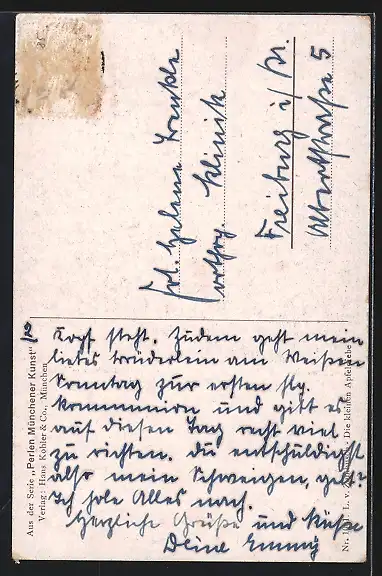 Frl. Helene
orthop. Klinik
Freiburg i/Br.
Albertstraße 5
12
Kopf steht. Zudem geht mein
liebes Brüderlein am Weißen
Sonntag zur ersten hlg.
Kommunion und gibt es
auf diesen Tag recht viel
zu richten. Du entschuldigst
also mein Schweigen, gelt?
Ich hole Alles nach.
Herzliche Grüße und Küße
Deine Emmy
Aus der Serie „Perlen Münchener Kunst“
Verlag: Hans Kohler & Co., München
L. v. Die kleinen Apfeldiebe